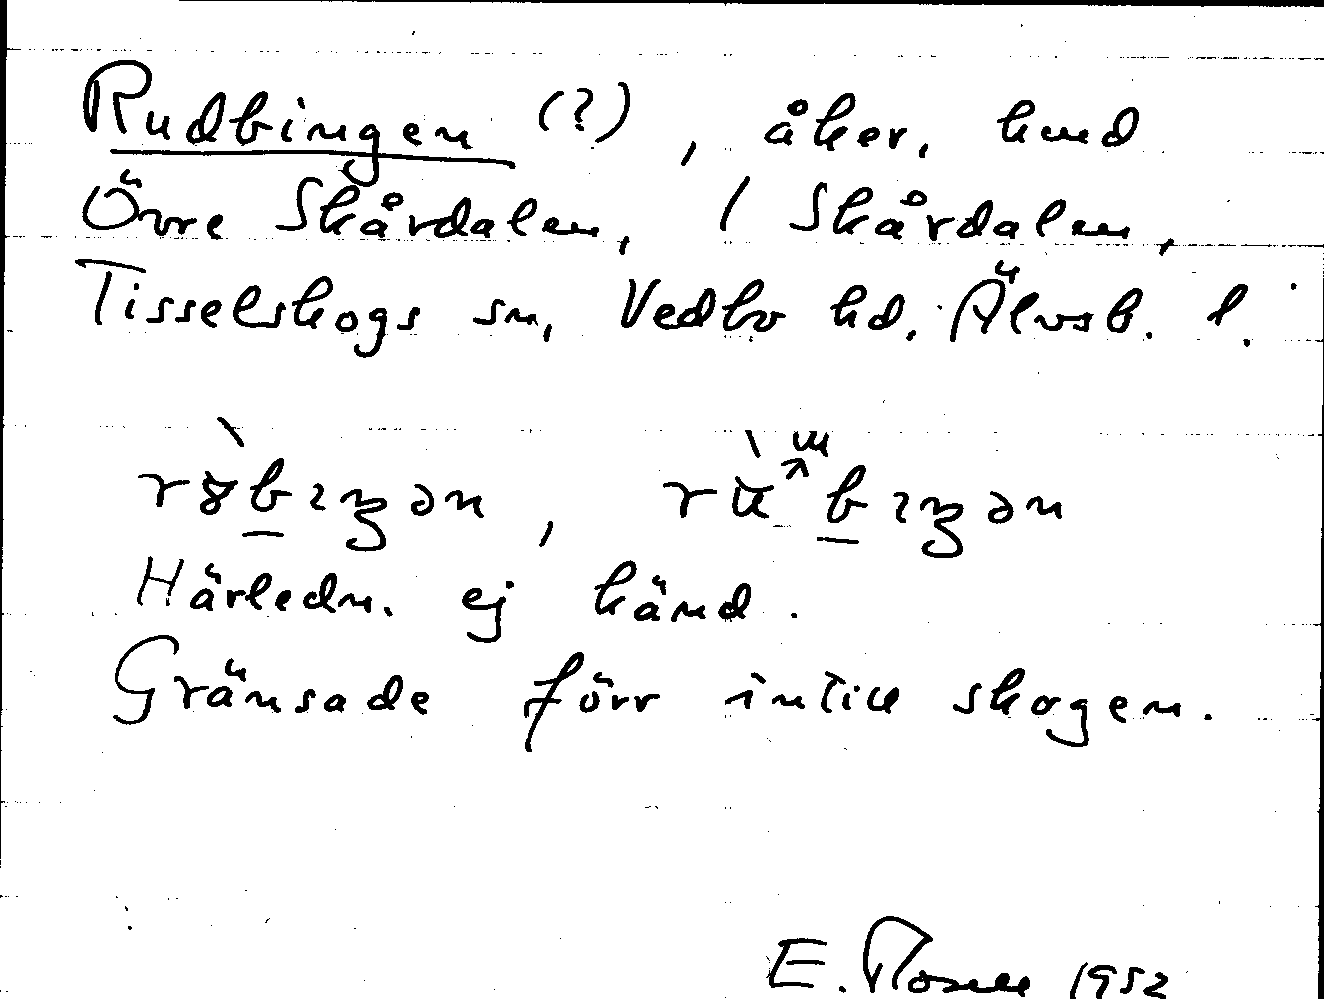 Rudbingen (?), åker, hmd
Övre Skårdalen, 1 Skårdalen,
Tisselskogs sn, Vedbo hd. Älvsb. l.
Härledn. ej känd.
Gränsade förr intill skogen.
E. 1952